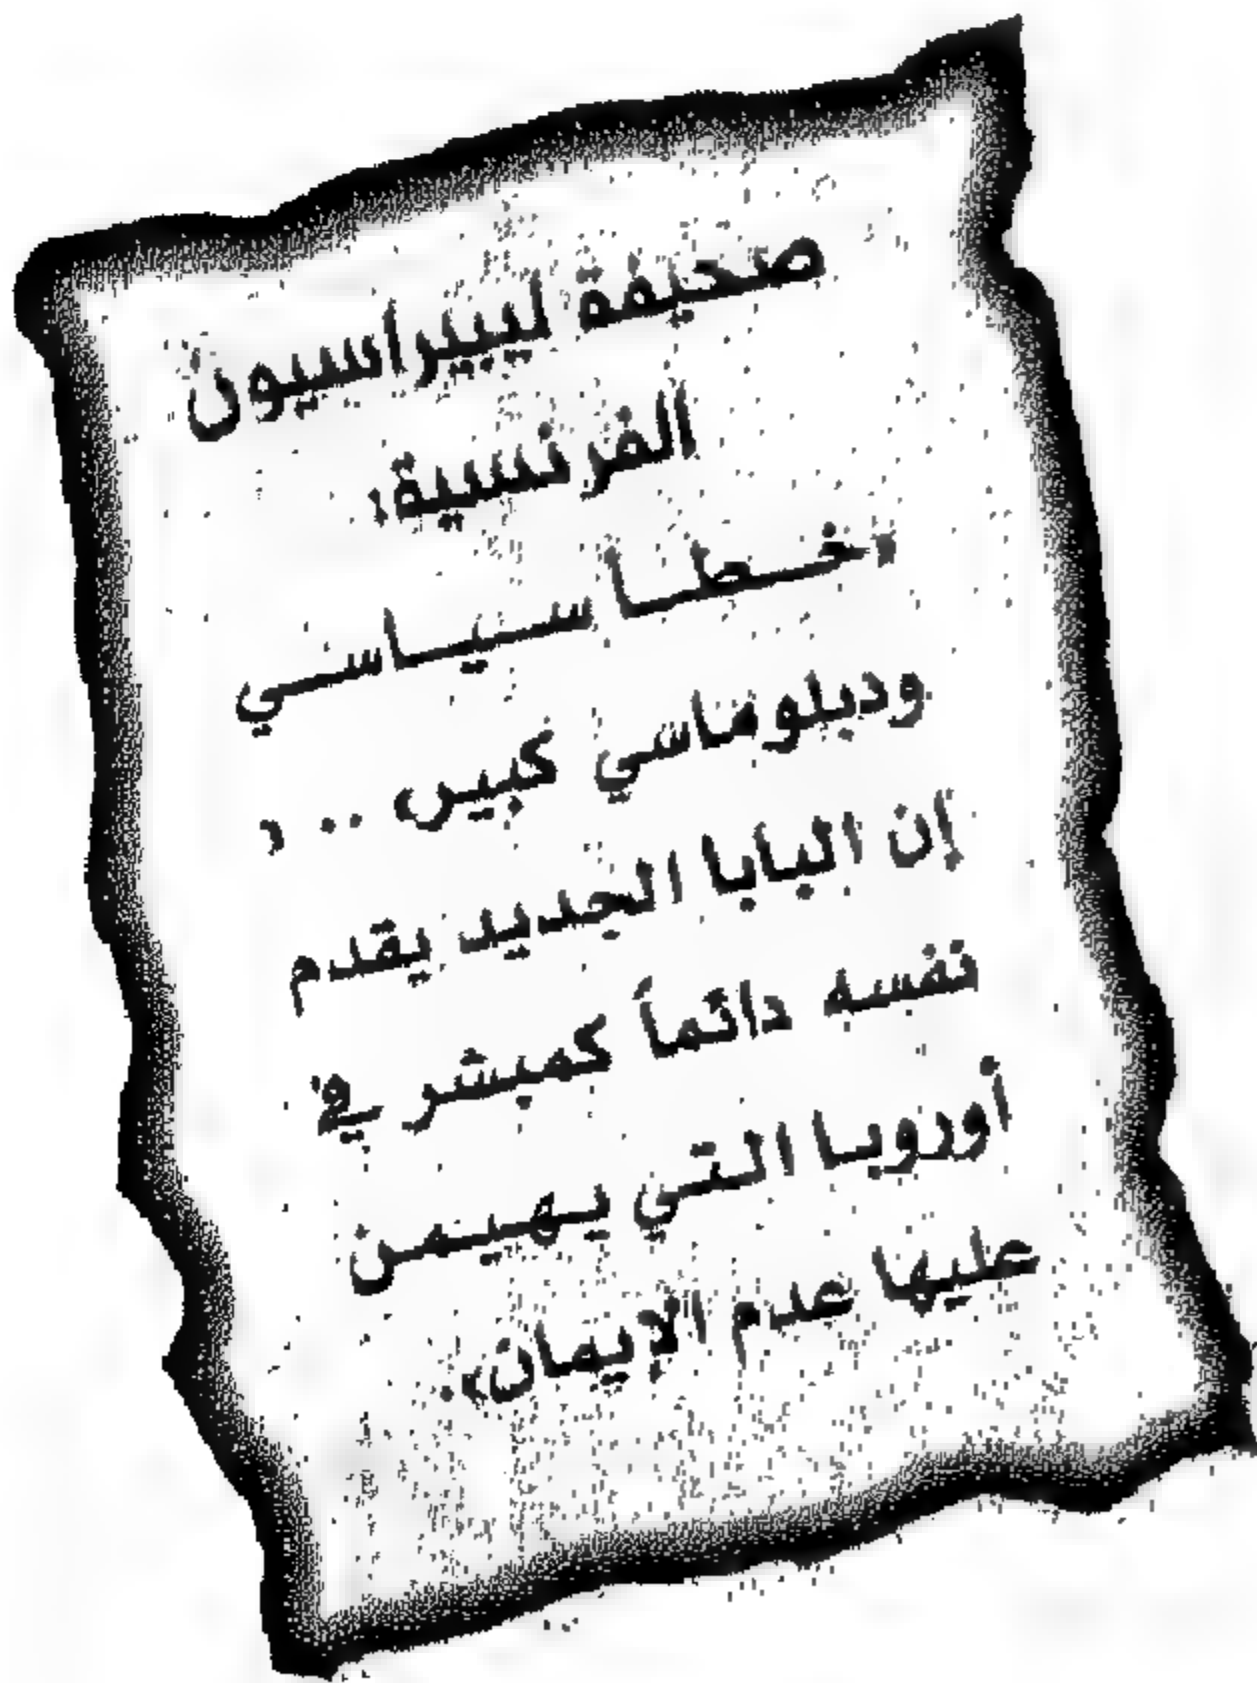 صحيفة ليبيراسيون
الفرنسية،
«خطا سياسي
ودبلوماسي كبير .. ،
إن البابا الجديد يقدم
نفسه دائماً كمبشر في
أوروبا التي يهيمن
عليها عدم الإيمان».